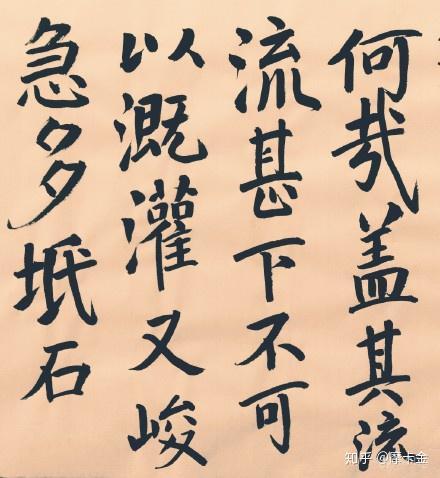 何哉盖其流
流甚下不可
以溉灌又峻
急多坻石
知乎 @摩卡金